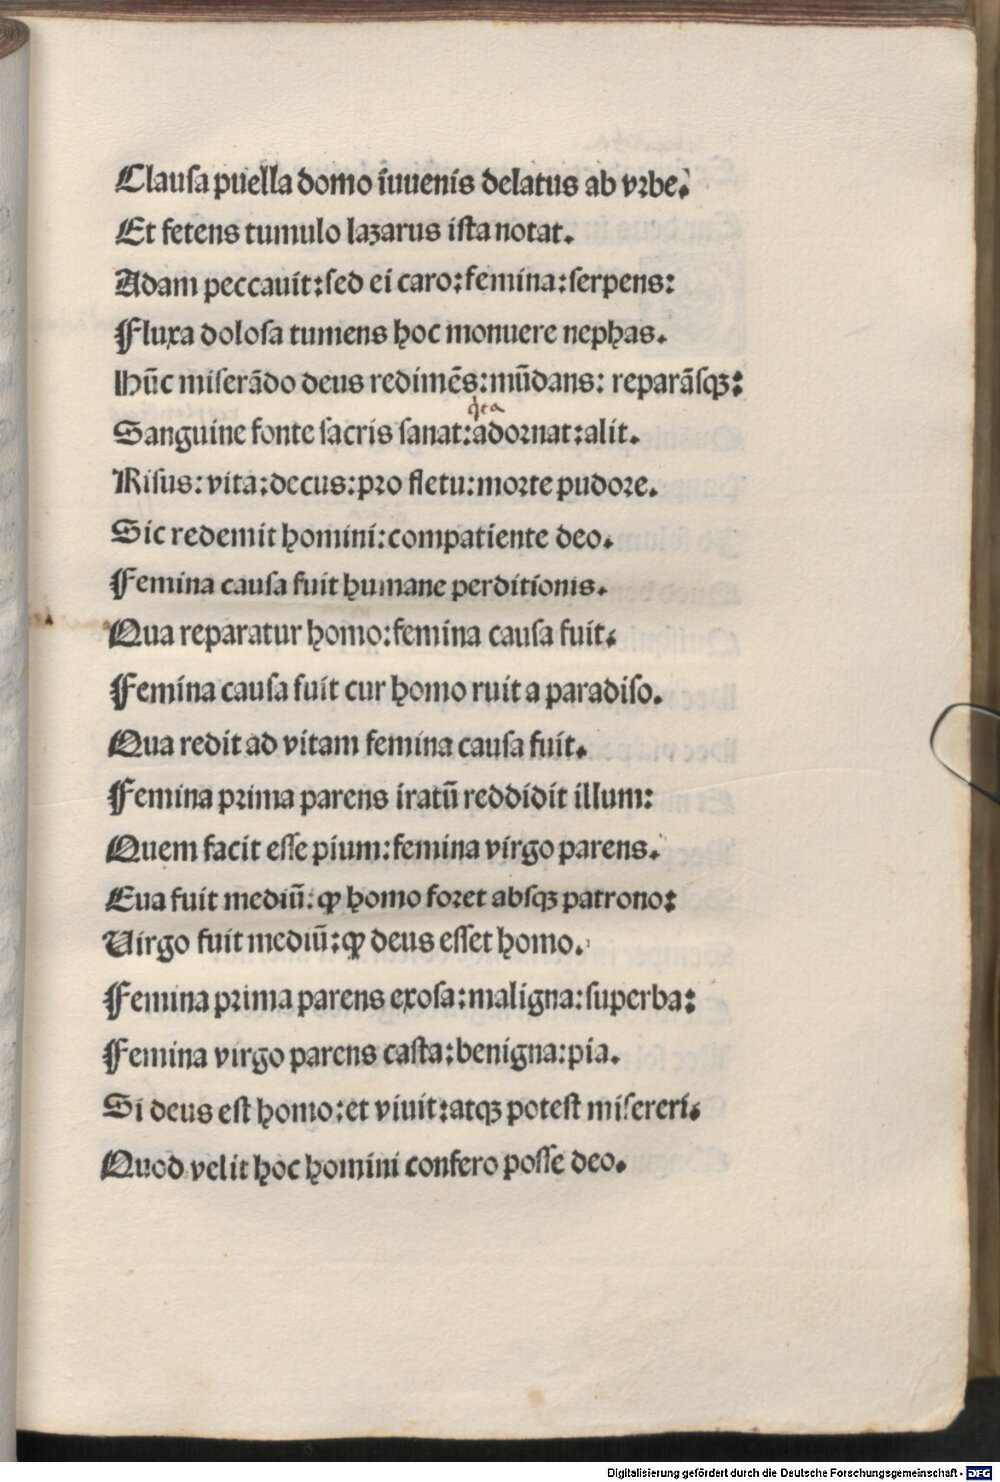 Clauſa puella domo iuuenis delatus ab vrbe.
Et fetens tumulo lazarus iſta notat.
Adam peccauit:ſed ei caro:femina:ſerpens:
Fluxa doloſa tumens hoc monuere nephas.
Hūc miſerādo deus redimēs:mūdans: reparāſqꝫ:
Sanguine fonte ſacris ſanat:adornat:alit.
Riſus:vita:decus:pro fletu:morte pudore.
Sic redemit homini:compatiente deo.
Femina cauſa fuit humane perditionis.
Qua reparatur homo:femina cauſa fuit.
Femina cauſa fuit cur homo ruit a paradiſo.
Qua redit ad vitam femina cauſa fuit.
Femina prima parens iratū reddidit illum:
Quem facit eſſe pium:femina virgo parens.
Eua fuit mediū:ꝙ homo foret abſqꝫ patrono:
Virgo fuit mediū:ꝙ deus eſſet homo.
Femina prima parens exoſa:maligna:ſuperba:
Femina virgo parens caſta:benigna:pia.
Si deus eſt homo:et viuit:atqꝫ poteſt miſereri.
Quod velit hoc homini confero poſſe deo.
Digitalisierung gefördert durch die Deutsche Forschungsgemeinschaft - DFG